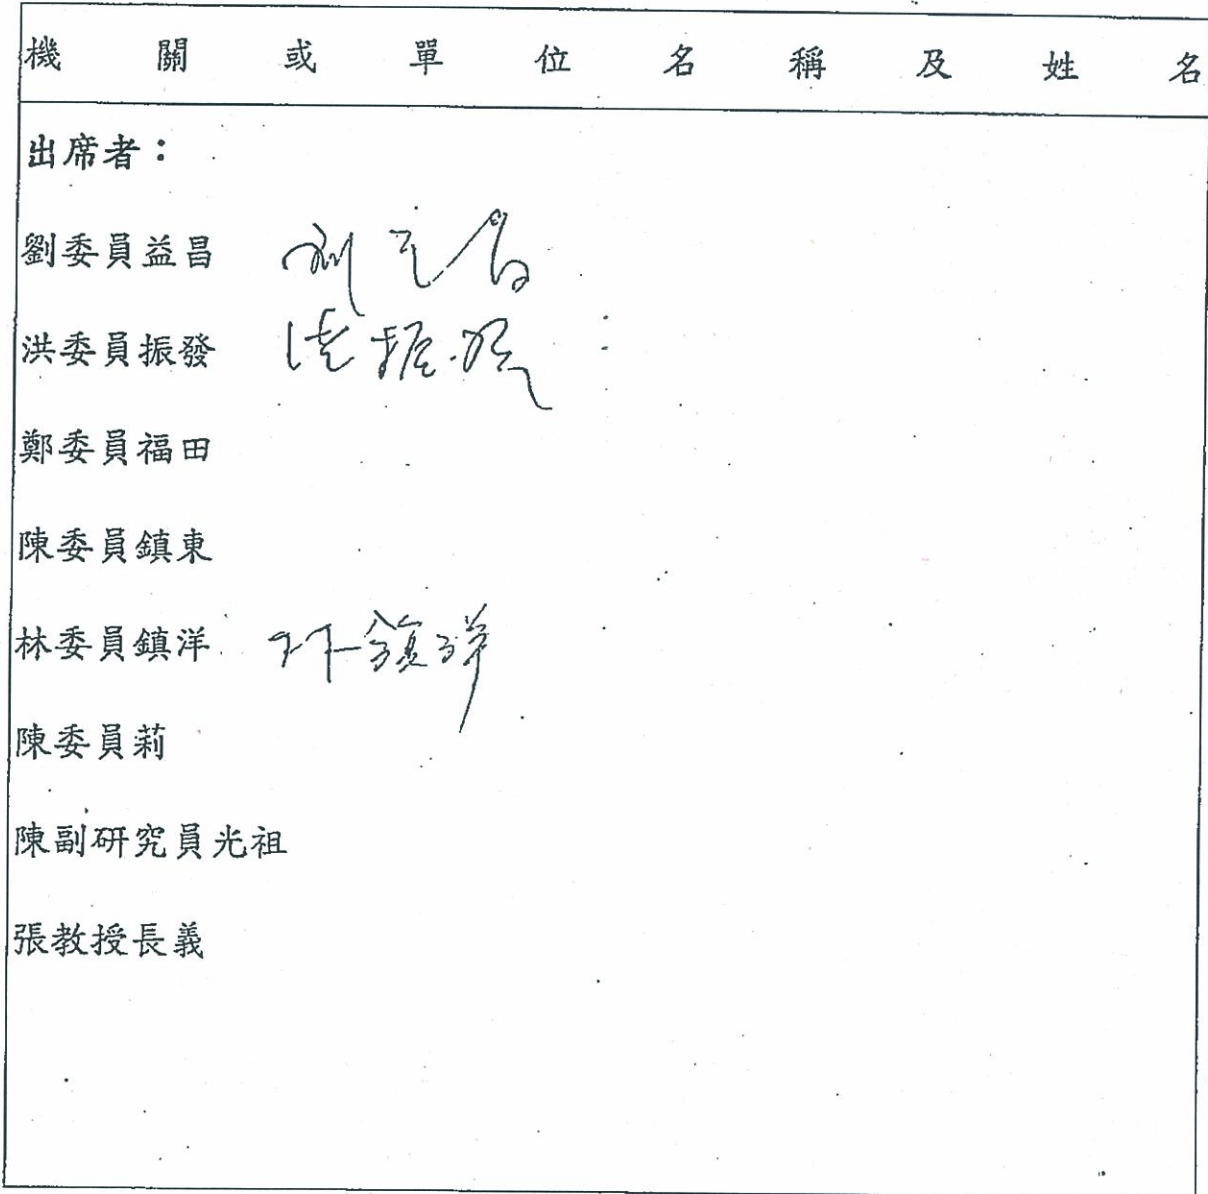 機關或單位名稱及姓名
出席者：
劉委員益昌 劉益昌
洪委員振發 洪振發
鄭委員福田
陳委員鎮東
林委員鎮洋 林鎮洋
陳委員莉
陳副研究員光祖
張教授長義